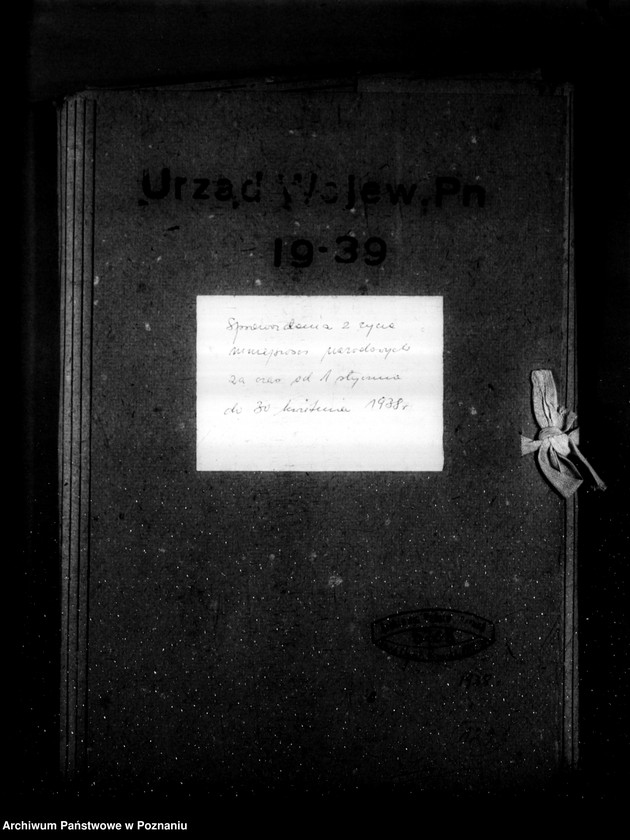 Urząd Wojew, Pn
19-39
Sprawozdania z życia
mniejszości narodowych
za czas od 1 stycznia
do 30 kwietnia 1938 r
Archiwum Państwowe w Poznaniu